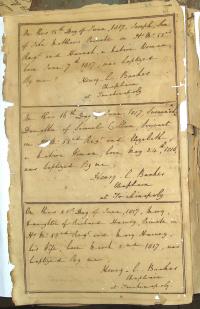 On this 15th Day of June, 1817, Joseph, Son
of John Matthews Private in H. M. 53rd
Regt and Hannah, a Native Woman,
born June 7th 1817, was baptized
By me,
Henry C. Bankes
Chaplain
at Trichinopoly
On this 16th Day of June, 1817,
Daughter of Samuel Serjeant
in H. M. 53rd Regt and Elizabeth
a Native Woman, born May 24th 1816,
was baptized By me,
Henry C. Bankes
Chaplain
at Trichinopoly
On this Day of June, 1817, Mary,
Daughter of Richard Harvey, Private in
H. M. 53rd Regt and Mary Harvey,
his Wife, born March 2nd 1817, was
baptized By me,
Henry C. Bankes
Chaplain
at Trichinopoly